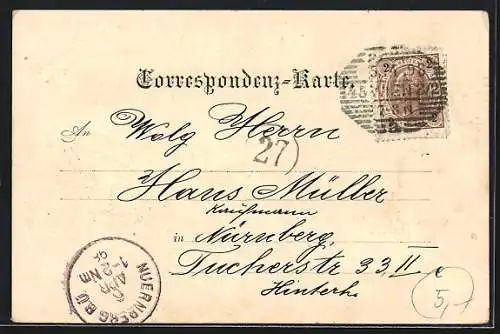 Correspondenz-Karte.
An Wolg Herrn
27
Hans Müller
Kaufmann
in Nürnberg
Tucherstr 33 II
Hinterh.
NUERNBERG B.U
6 APR
1-2 NM
5,-